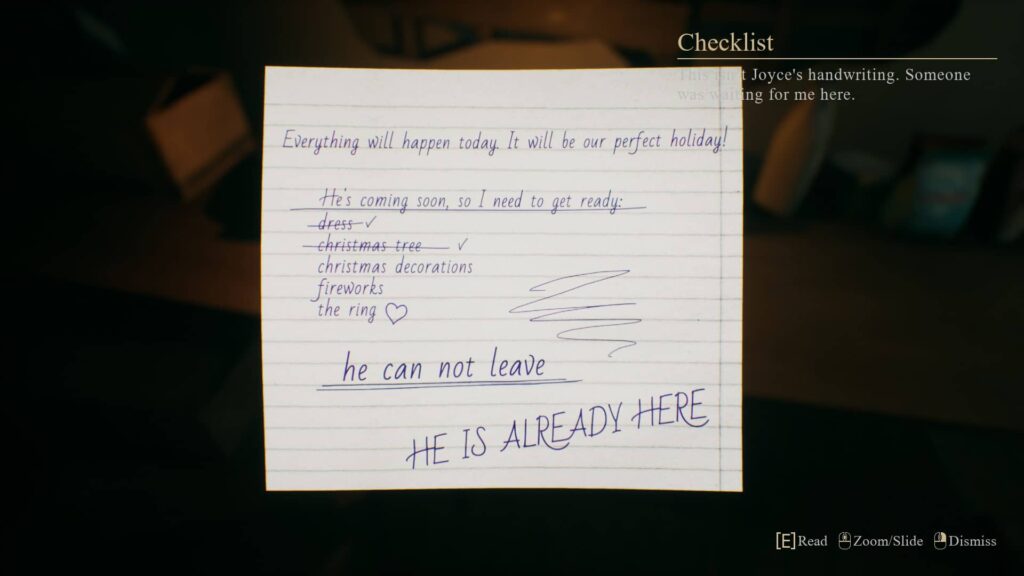 Checklist
This isn't Joyce's handwriting. Someone
was waiting for me here.
Everything will happen today. It will be our perfect holiday!
He's coming soon, so I need to get ready:
dress ✓
christmas tree ✓
christmas decorations
fireworks
the ring ♡
he can not leave
HE IS ALREADY HERE
[E] Read Zoom/Slide Dismiss